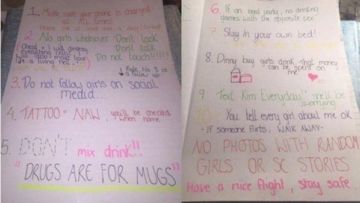 1. Make sure your phone is charged
at ALL times!
2. No girls whatsoever Don't look
Don't talk
Do not touch!!!!!
3. Do not follow girls on social
media
4. TATTOO = NAW you'll be checked
when home
5. DON'T mix drink
"DRUGS ARE FOR MUGS"
6. If on and about, no drinking
games with the opposite sex
7. Stay in your own bed!
8. Dinny buy girls drink that money
can be spent on
me
9 Text Kim Everyday
10 You tell every girl about me ok
- If someone flirts, WALK AWAY-
NO PHOTOS WITH RANDOM
GIRLS OR SC STORIES
Have a nice flight, stay safe